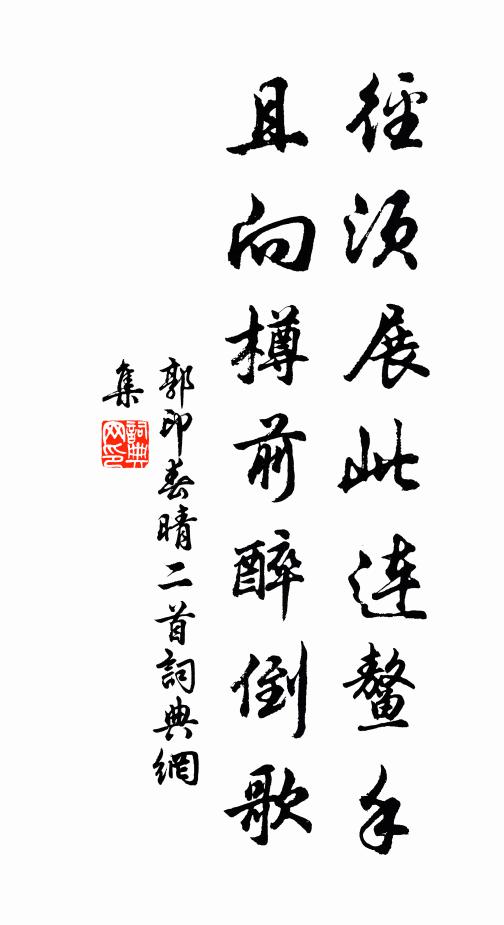 徑須展此連鰲手
且向樽前醉倒歌
郭印春晴二首詞典網
集
詞典
网印